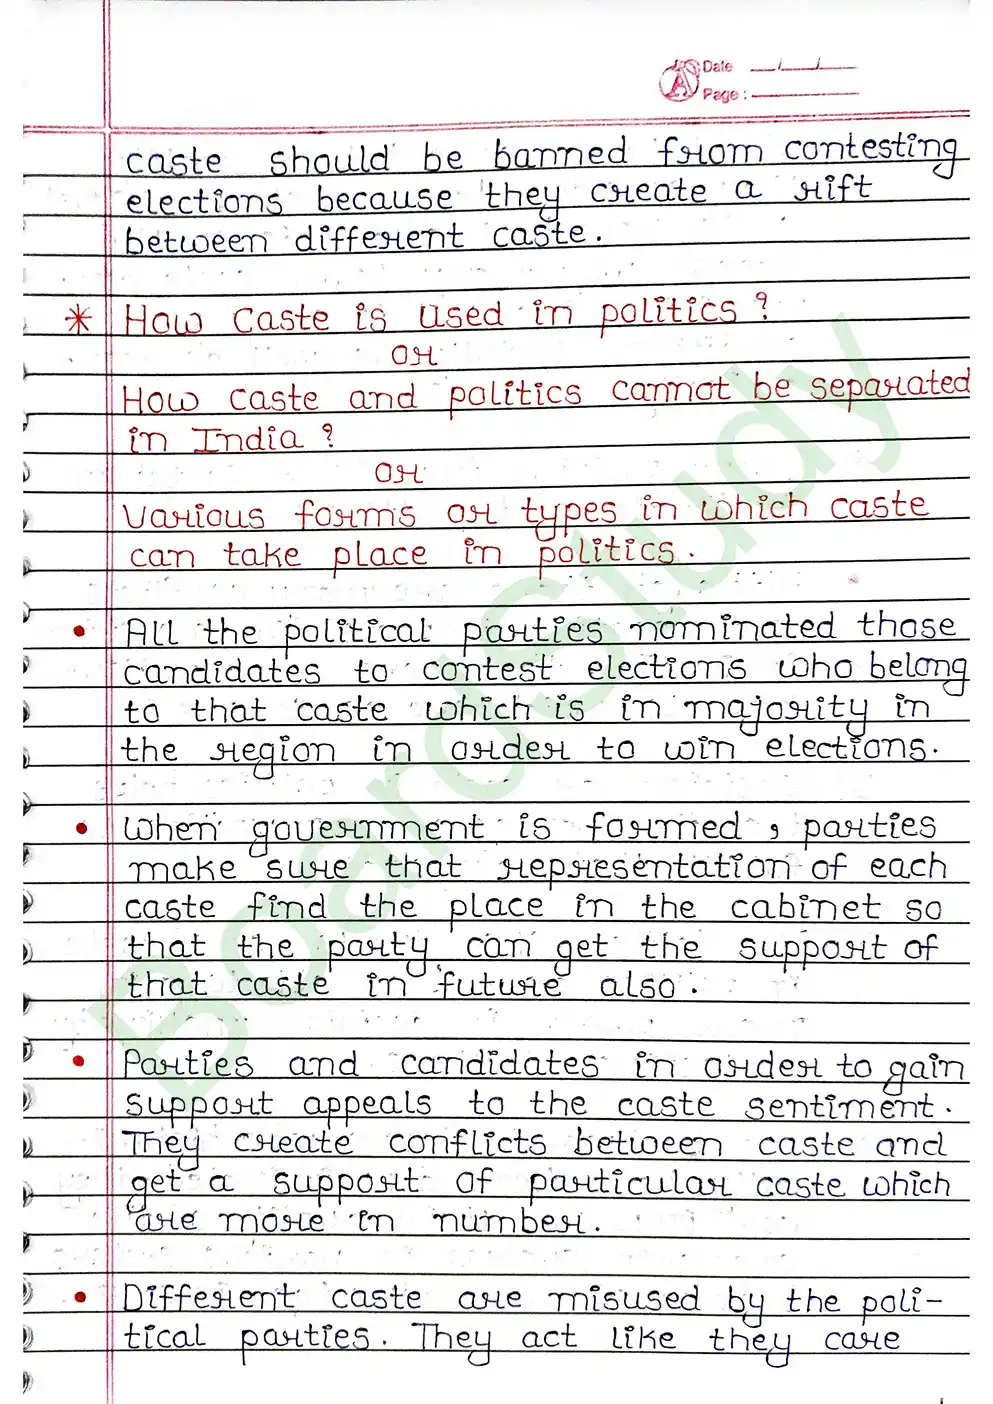 Date
Page :
caste should be banned from contesting
elections because they create a rift
between different caste.
* How caste is used in politics ?
OR
How caste and politics cannot be separated
in India ?
OR
Various forms or types in which caste
can take place in politics.
• All the political parties nominated those
candidates to contest elections who belong
to that caste which is in majority in
the region in order to win elections.
• When government is formed , parties
make sure that representation of each
caste find the place in the cabinet so
that the party can get the support of
that caste in future also.
• Parties and candidates in order to gain
support appeals to the caste sentiment.
They create conflicts between caste and
get a support of particular caste which
are more in number.
• Different caste are misused by the poli-
tical parties. They act like they care
BoardStudy